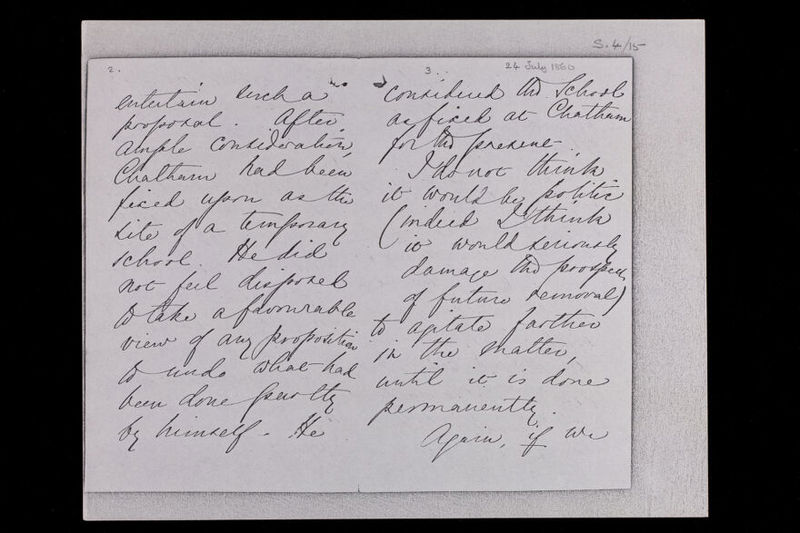 S.4/15
2.
entertain such a
proposal. After
ample consideration,
Chatham had been
fixed upon as the
site of a temporary
school. He did
not feel disposed
to take a favourable
view of any proposition
to undo what had
been done partly
by himself. He
3.
24 July 1860
considered the School
as fixed at Chatham
for the present.
I do not think
it would be politic
(indeed I think
it would seriously
damage the prospects
of future removal)
to agitate farther
in the matter,
until it is done
permanently.
Again, if we